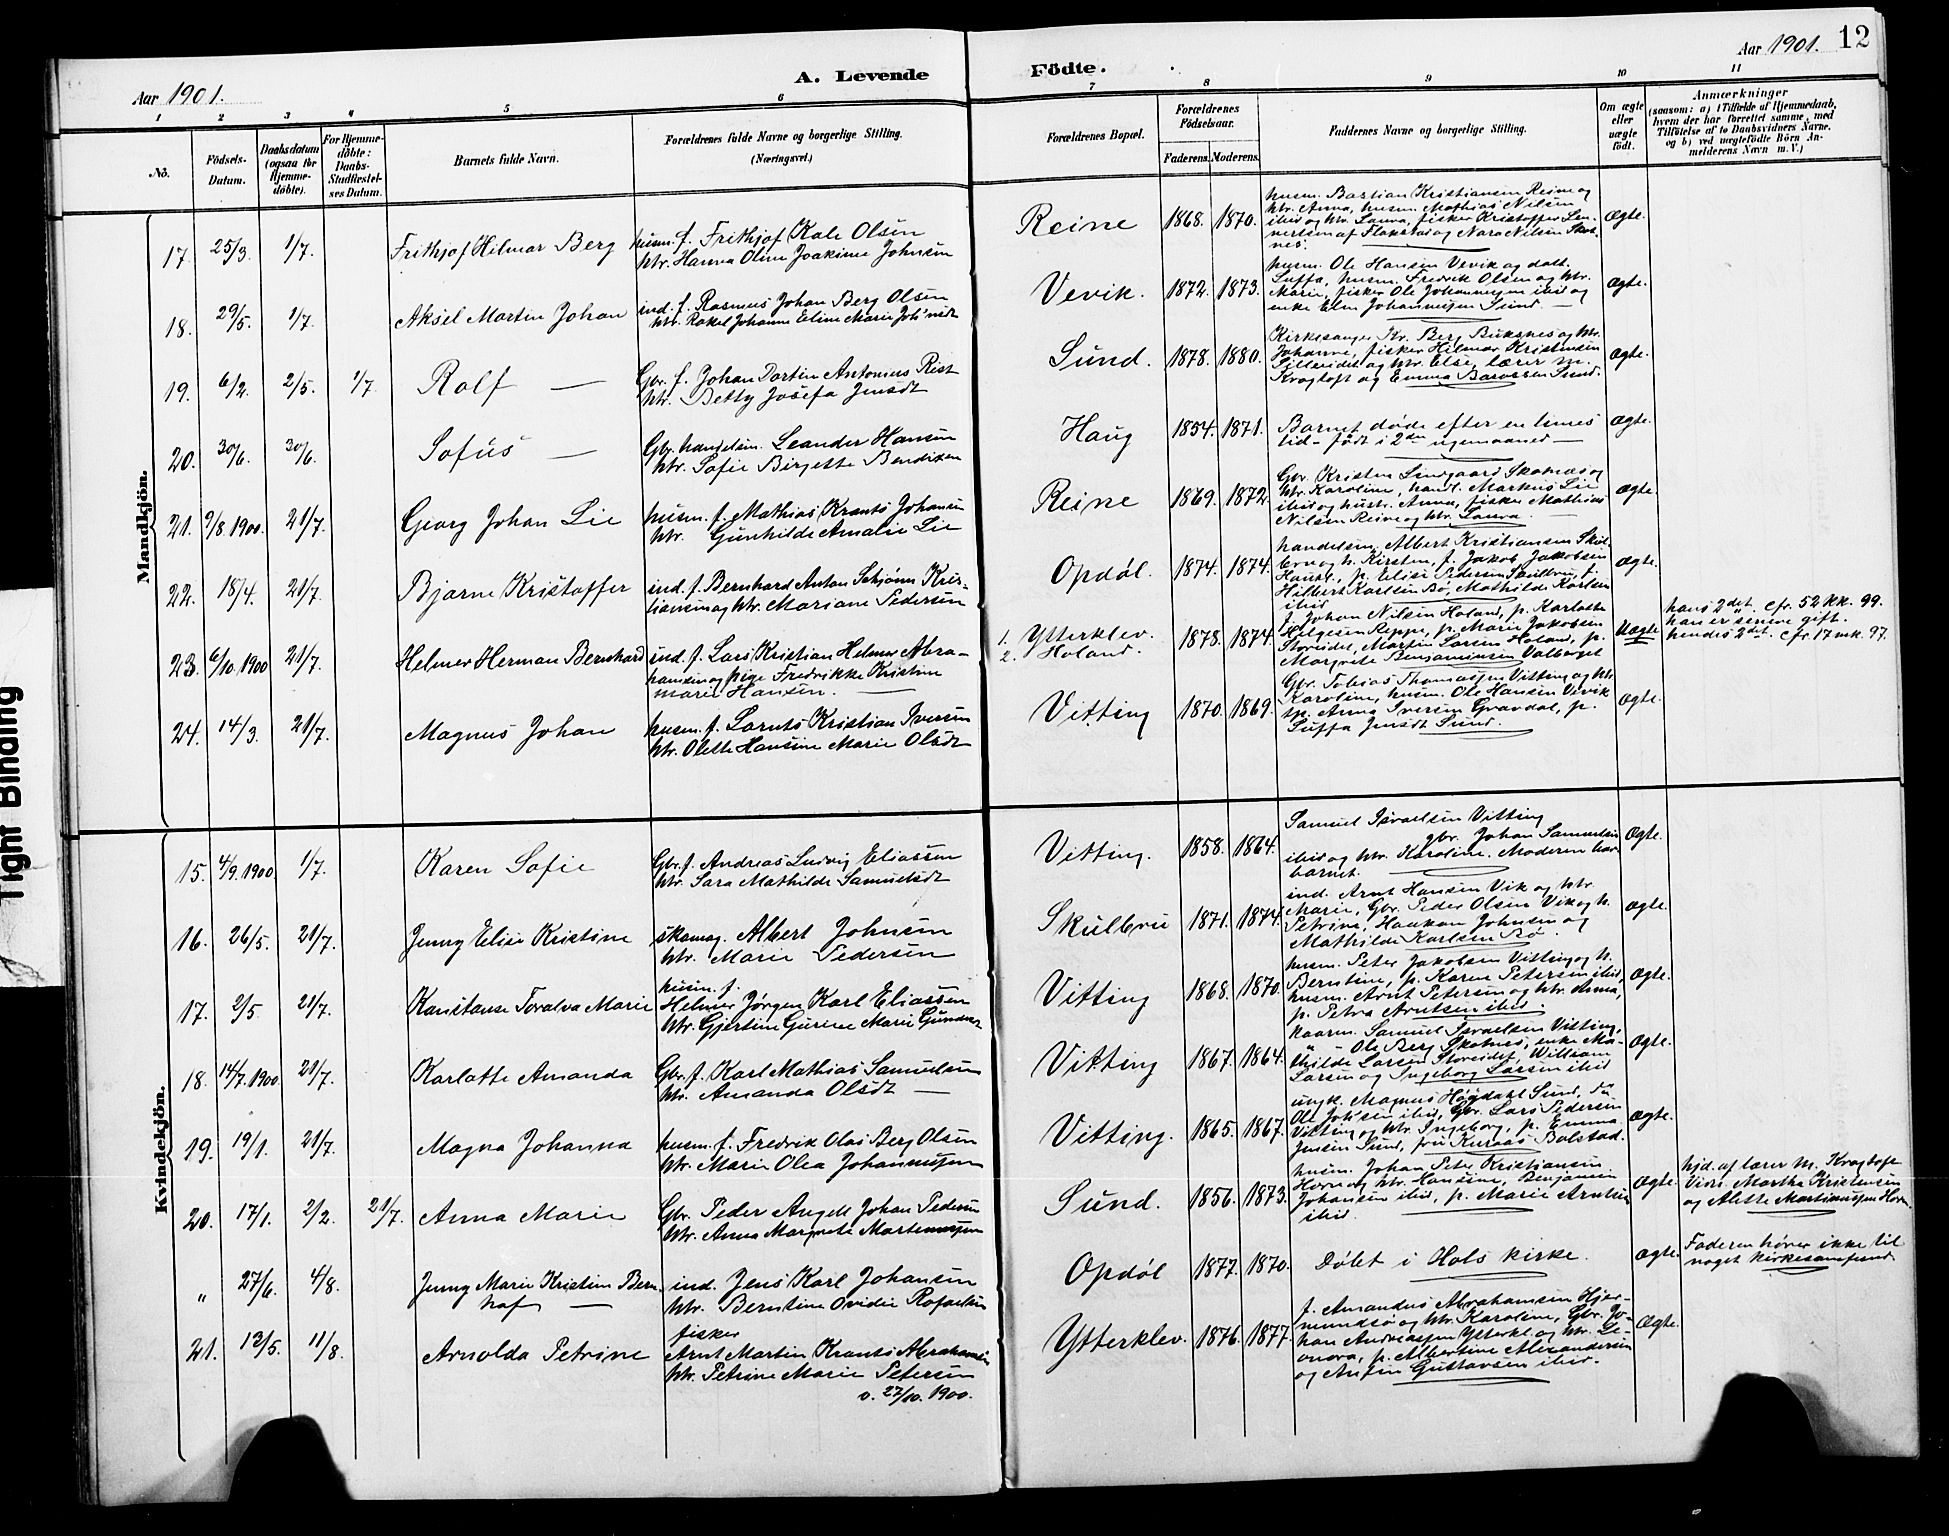 Aar 1901.
A. Levende
Födte.
Aar 1901. 12
1 2 3 4 5 6 7 8 9 10 11
No.
Födsels-Datum.
Daabsdatum (ogsaa for Hjemme-döbte).
For Hjemme-döbte: Daabs-Stadfæstel-ses Datum.
Barnets fulde Navn.
Forældrenes fulde Navne og borgerlige Stilling.
(Næringsvei.)
Forældrenes Bopæl.
Forældrenes Födselsaar.
Faderens. Moderens.
Faddernes Navne og borgerlige Stilling.
Om ægte eller uægte födt.
Anmærkninger
(saasom: a) i Tilfælde af Hjemmedaab, hvem der har forrettet samme, med Tilföielse af to Daabsvidners Navne, og b) ved uægtefödte Börn An-melderens Navn m. V.)
Mandkjön.
17. 25/3. 1/7. Frithjof Hilmar Berg
husm. f. Frithjof Kale Olsen
htr. Hanna Oline Joakime Johnsen
Reine 1868. 1870.
husm. Bastian Kristiansen Reine og
htr. Anna, husm. Mathias Nilsen
ibid og htr. Laura, fisker Kristoffer
af Flakstad og Nora Nilsen
Ægte.
18. 29/5. 1/7. Aksel Martin Johan
ind. f. Rasmus Johan Berg Olsen
htr. Rakel Johanne Eline Marie Joh'nsdt
Vevik. 1872. 1873.
husm. Ole Hansen Vevik og datt.
Suffa, husm. Fredrik Olsen og htr.
Marie, fisker Ole Johannesen ibid og
enke Elen Johannesen Sund.
Ægte.
19. 6/2. 2/5. 1/7. Rolf —
Gbr. f. Johan Dortin Antonius Rist
htr. Betty Josefa Jensdt
Sund. 1878. 1880.
Kirkesanger Kr. Berg Buksnes og htr.
Johanne, fisker Hilmar Kristensen
og htr. Else, lærer M.
Kragtoft og Emma Sund.
Ægte.
20. 30/6. 30/6. Sofus —
Gbr. handelsm. Leander Hansen
htr. Sofie Birgette Bendixen
Haug 1854. 1871.
Barnet døde efter en times
tid – født i 2den
Ægte.
21. 9/8. 1900. 21/7. Georg Johan Lie
husm. f. Mathias Krantz Johansen
htr. Gunhilde Amalie Lie
Reine 1869. 1872.
Gbr. Kristen Lindgaard Skotnes og
htr. Karoline, handl. Markus Lie
ibid og hustr. Anna, fisker Mathias
Nilsen Reine og htr. Laura.
Ægte.
22. 18/4. 21/7. Bjarne Kristoffer
ind. f. Bernhard Anton Schjönn Kris-
tiansen og htr. Mariane Pedersen
Opdøl. 1874. 1874.
handelsm. Albert Kristiansen Skul-
bru og h. Kirsten, f. Jakob Jakobsen
Haug, p. Elise Pedersen Skulbru, f.
Hilbert Karlsen Bö, Mathilde Karlsen
ibid
Ægte.
23. 6/10. 1900 21/7. Helmer Herman Bernhard
ind. f. Lars Kristian Helmer Abra-
hamsen og pige Fredrikke Kristine
Marie Hansen. —
1. Ytterklev.
2. Holand.
1878. 1874.
f. Johan Nilsen Holand, p. Karlotte
Helgesen Reppe, p. Marie Jakobsen
Storeidet, Martin Larsen Holand, p.
Margrete Benjaminsen Valberget
Uægte
hans 2det. cfr. 52 kk. 99.
han er senere gift.
hendes 2det. cfr. 17 mk. 97.
24. 14/3. 21/7. Magnus Johan
husm. f. Lornts Kristian Iversen
htr. Olette Hansine Marie Olsdt
Vitting 1870. 1869.
Gbr. Tobias Thomassen Vitting og htr.
Karoline, husm. Ole Hansen Vevik
Anna Iversen Gravdal, p.
Suffa Jensdt Sund.
Ægte.
Kvindekjön.
15. 4/9. 1900. 1/7. Karen Sofie
Gbr. f. Andreas Ludvig Eliassen
htr. Sara Mathilde Samuelsdt
Vitting. 1858. 1864.
Samuel Israelsen Vitting
gbr. Johan Samuelsen
ibid og htr. Karoline. Moderen bar
barnet.
Ægte.
16. 26/5. 21/7. Jenny Elise Kristine
skomag. Albert Johnsen
htr. Marie Pedersen
Skulbru 1871. 1874.
ind. Arnt Hansen Vik og htr.
Marie, Gbr. Peder Olsen Vik og h.
Petrine, Haakon Johnsen og
Mathilde Karlsen Bö.
Ægte.
17. 2/5. 21/7. Konstanse Toralva Marie
husm. f.
Helmer Jørgen Karl Eliassen
htr. Gjertine Gurine Marie
Vitting 1868. 1870.
husm. Peter Jakobsen Vitting og h.
Berntine, p. Karen Petersen ibid,
husm. Arnt Petersen og htr. Anna,
p. Petra Arntsen ibid.
Ægte.
18. 14/7. 1900. 21/7. Karlotte Amanda
Gbr. f. Karl Mathias Samuelsen
htr. Amanda Olsdt —
Vitting 1867. 1864.
kaarm. Samuel Israelsen Vitting,
" Ole Berg Skotnes, enke Ma-
thilde Larsen Storeidet, William
Larsen og Ingeborg Larsen ibid
Ægte.
19. 19/1. 21/7. Magna Johanna
husm. f. Fredrik Olai Berg Olsen
htr. Marie Olea Johannessen
Vitting. 1865. 1867.
ungk. Magnus Høydahl Sund, do
Ole Joh'sen ibid, Gbr. Lars Pedersen
Vitting og htr. Ingeborg, p. Emma
Jensen Sund, fru Kuraas Bolstad.
Ægte.
20. 17/1. 2/2. 21/7. Anna Marie
Gbr. Peder Angell Johan Pedersen
htr. Anna Margrete Martinussen
Sund. 1856. 1873.
husm. Johan Peter Kristiansen
Horn og htr. Hansine, Benjamin
Johansen ibid, p. Marie Arntsen
ibid.
Ægte.
hjd. af lærer M. Kragtoft
Vidn. Martha Kristensen
og Alette Martinussen Horn.
" 27/6. 4/8. Jenny Marie Kristine Bern-
hof —
ind. Jens Karl Johansen
htr. Berntine Ovidie Rafaelsen
Opdøl 1877. 1870.
Døbt i Hols kirke.
Ægte.
Faderen hører ikke til
noget kirkesamfund.
21. 13/5. 11/8. Arnolda Petrine
fisker
Arnt Martin Krants Abrahamsen
htr. Petrine Marie Petersen
v. 27/10. 1900.
Ytterklev. 1876. 1877.
f. Amandus Abrahamsen Hjer-
mundsö og htr. Karoline, Gbr. Jo-
han Andreassen Ytterkl. og htr. Le-
onora, p. Albertine Alexandersen
og Anfin Gustavsen ibid.
Ægte.
Tight Binding